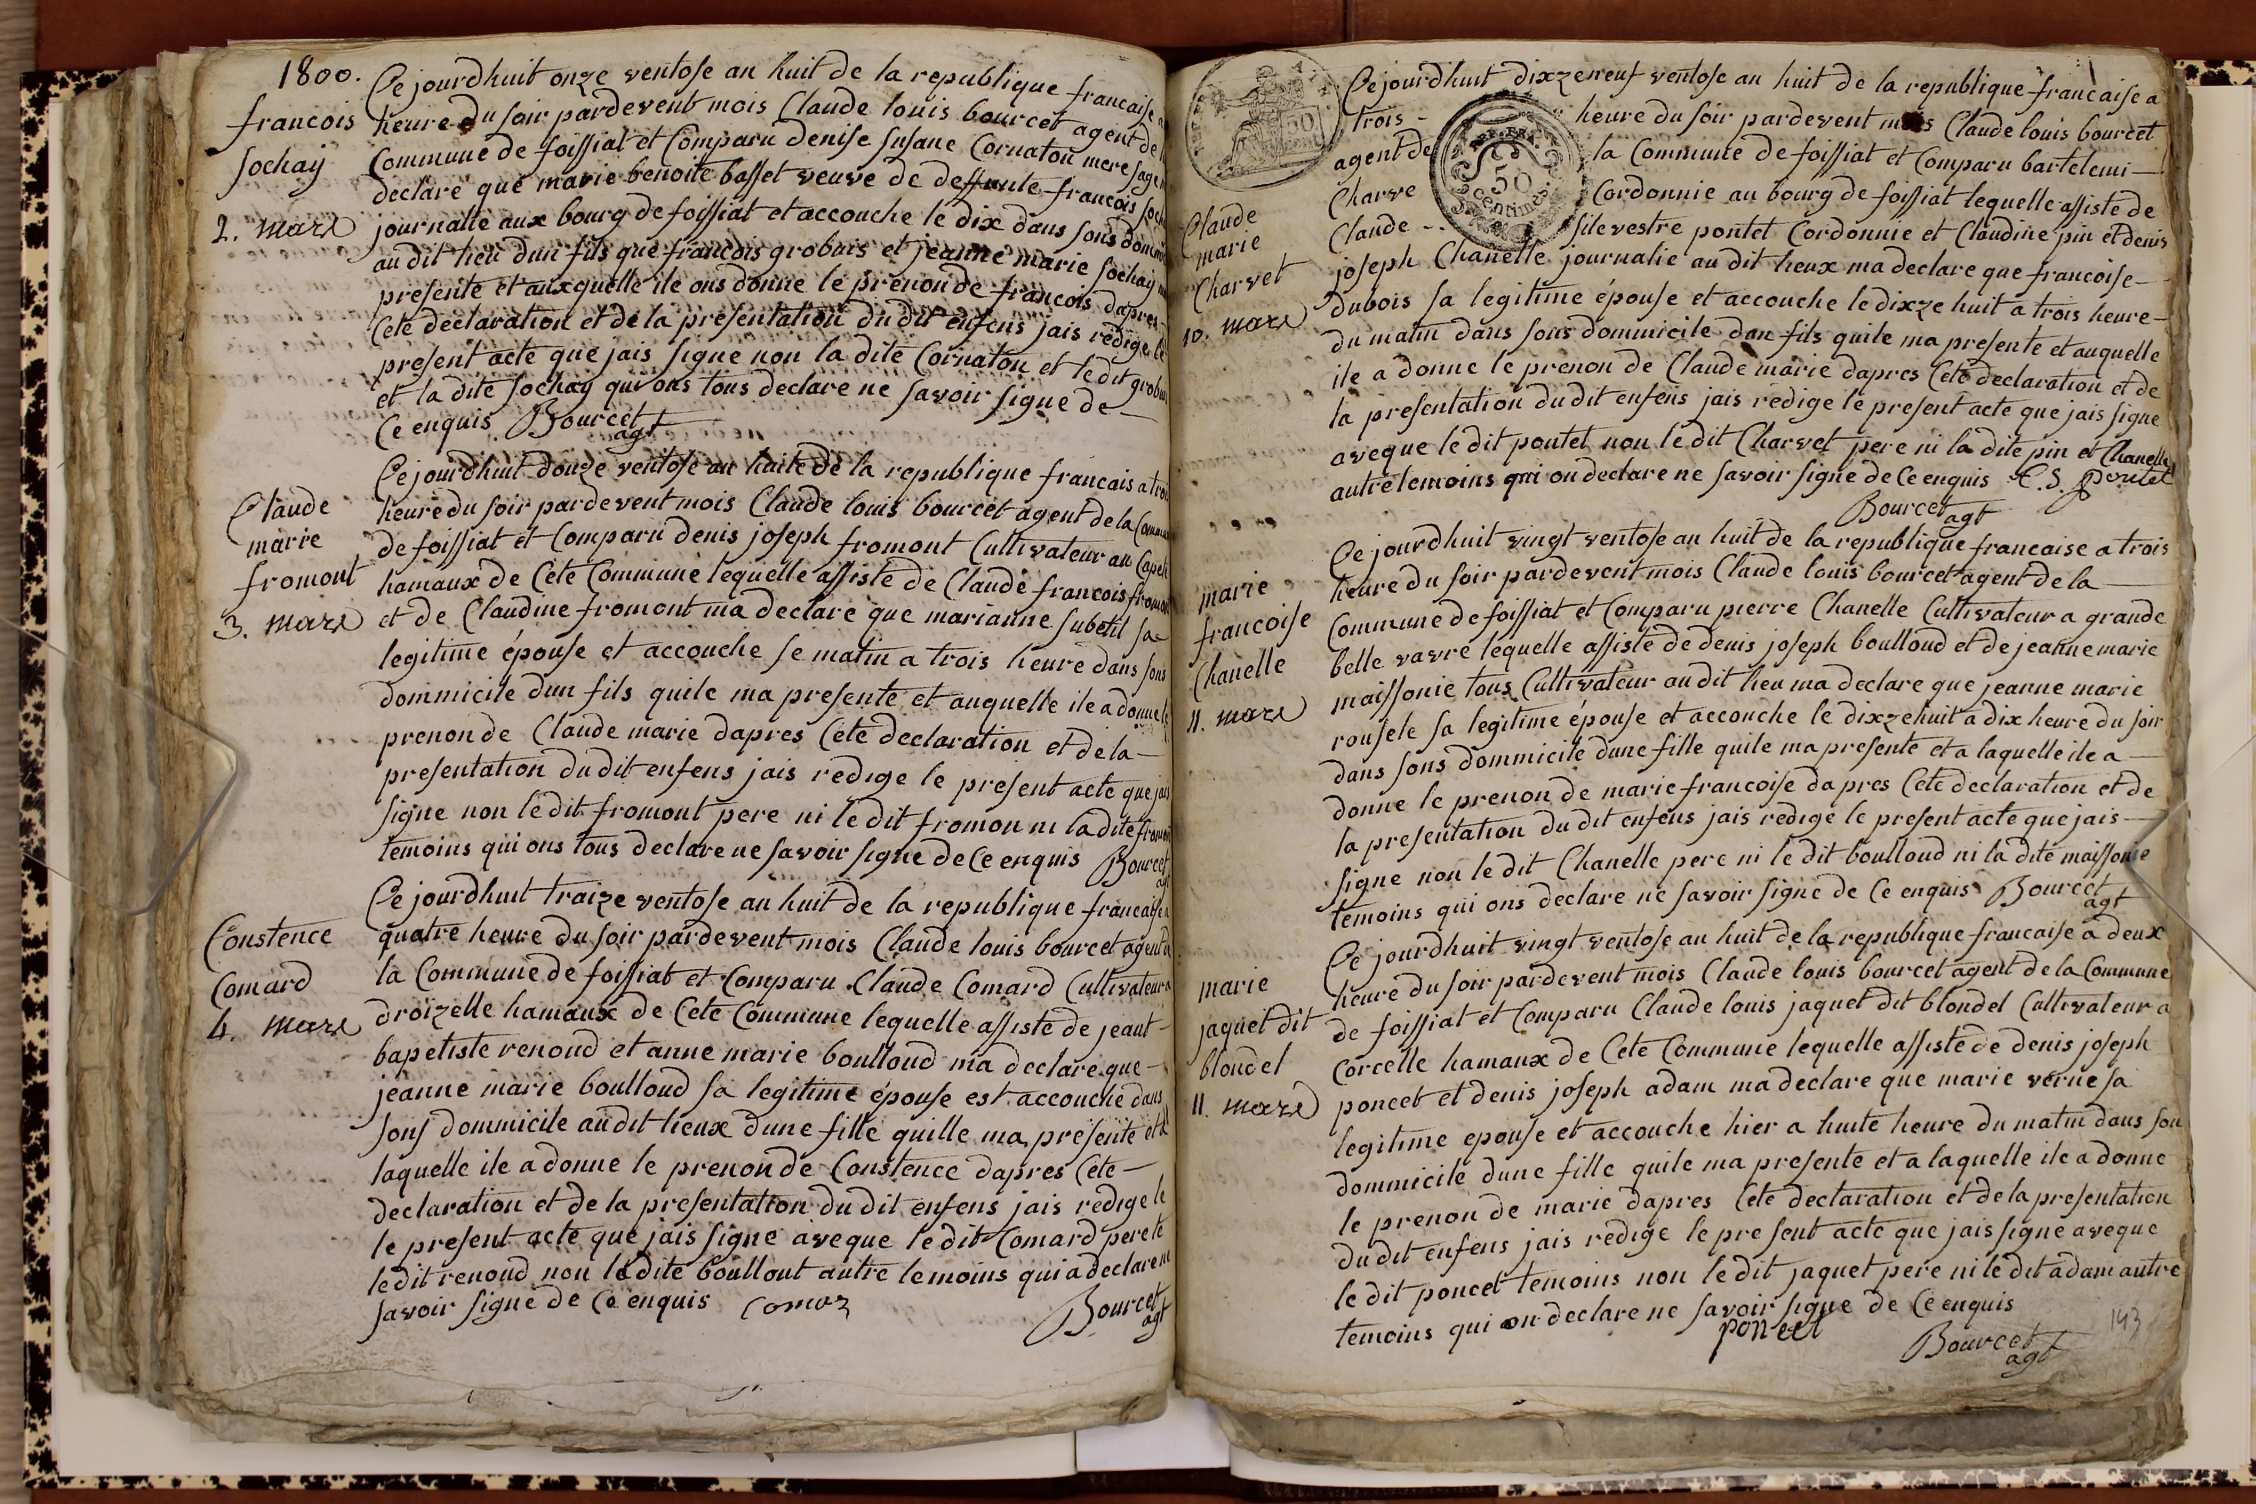 1800.
francois
sochay
2. mars
Ce jourdhuit onze ventose an huit de la republique francaise a
heure du soir pardevent mois Claude louis bourcet agent de
Commune de foissiat et Comparu denise susane Cornaton mere sage
declare que marie benoite basset veuve de deffunte francois
journalie aux bourg de foissiat et accouche le dix dans sons
au dit lieu dun fils que francois grobuis et jeanne marie sochay
presente et auxquelle ile ons donne le prenon de francois dapres
Cete declaration et de la presentation du dit enfens jais redige le
present acte que jais signe non la dite Cornaton et le dit
et la dite sochay qui ons tous declare ne savoir signe de
Ce enquis Bourcet
agt
Claude
marie
fromont
3. mars
Ce jourdhuit douze ventose an huite de la republique francais a trois
heure du soir pardevent mois Claude louis bourcet agent de la
de foissiat et Comparu denis joseph fromont Cultivateur au
hamaux de Cete Commune lequelle assiste de Claude francois fromont
et de Claudine fromont ma declare que marianne subetil sa
legitime épouse et accouche se matin a trois heure dans sons
dommicile dun fils quile ma presente et auquelle ile a donne le
prenon de Claude marie dapres Cete declaration et de la
presentation du dit enfens jais redige le present acte que jais
signe non le dit fromont pere ni le dit fromon ni la dite fromont
temoins qui ons tous declare ne savoir signe de Ce enquis Bourcet
agt
Constence
Comard
4. mars
Ce jourdhuit traize ventose an huit de la republique francaise a
quatre heure du soir pardevent mois Claude louis bourcet agent de
la Commune de foissiat et Comparu Claude Comard Cultivateur a
droizelle hamaux de Cete Commune lequelle assiste de jeant
bapetiste renoud et anne marie boulloud ma declare que
jeanne marie boulloud sa legitime épouse est accouche dans
sons dommicile audit lieux dune fille quille ma presente et a
laquelle ile a donne le prenon de Constence dapres Cete
declaration et de la presentation du dit enfens jais redige le
le present acte que jais signe aveque le dit Comard pere et
le dit renoud non ladite boullout autre temoins qui a declare ne
savoir signe de Ce enquis comar Bourcet
agt
50
Claude
marie
Charvet
10. mars
Ce jourdhuit dixzeneuf ventose an huit de la republique francaise a
trois heure du soir pardevent mois Claude louis bourcet
agent de la Commune de foissiat et Comparu bartelemi
Charve Cordonnie au bourg de foissiat lequelle assiste de
Claude silevestre pontet Cordonnie et Claudine pin et denis
joseph Chanelle journalie au dit lieux ma declare que francoise
dubois sa legitime épouse et accouche le dixze huit a trois heure
du matin dans sons dommicile dun fils quile ma presente et auquelle
ile a donne le prenon de Claude marie dapres Cete declaration et de
la presentation du dit enfens jais redige le present acte que jais signe
aveque le dit pontet non le dit Charvet pere ni la dite pin et Chanelle
autre temoins qui on declare ne savoir signe de Ce enquis C. S. pontet
Bourcet
agt
50
Centimes
marie
francoise
Chanelle
11. mars
Ce jourdhuit vingt ventose an huit de la republique francaise a trois
heure du soir pardevent mois Claude louis bourcet agent de la
Commune de foissiat et Comparu pierre Chanelle Cultivateur a grande
belle vavre lequelle assiste de denis joseph boulloud et de jeanne marie
maissonie tous Cultivateur au dit lieu ma declare que jeanne marie
rousele sa legitime épouse et accouche le dixzehuit a dix heure du soir
dans sons dommicile dune fille quile ma presente et a laquelle ile a
donne le prenon de marie francoise dapres Cete declaration et de
la presentation du dit enfens jais redige le present acte que jais
signe non le dit Chanelle pere ni le dit boulloud ni la dite maissonie
temoins qui ons declare ne savoir signe de Ce enquis Bourcet
agt
marie
jaquet dit
blondel
11. mars
Ce jourdhuit vingt ventose an huit de la republique francaise a deux
heure du soir pardevent mois Claude louis bourcet agent de la Commune
de foissiat et Comparu Claude louis jaquet dit blondel Cultivateur a
Corcelle hamaux de Cete Commune lequelle assiste de denis joseph
poncet et denis joseph adam ma declare que marie verne sa
legitime epouse et accouche hier a huite heure du matin dans son
dommicile dune fille quile ma presente et a laquelle ile a donne
le prenon de marie dapres Cete declaration et de la presentation
du dit enfens jais redige le present acte que jais signe aveque
le dit poncet temoins non le dit jaquet pere ni le dit adam autre
temoins qui on declare ne savoir signe de Ce enquis
poncet
Bourcet
agt
143